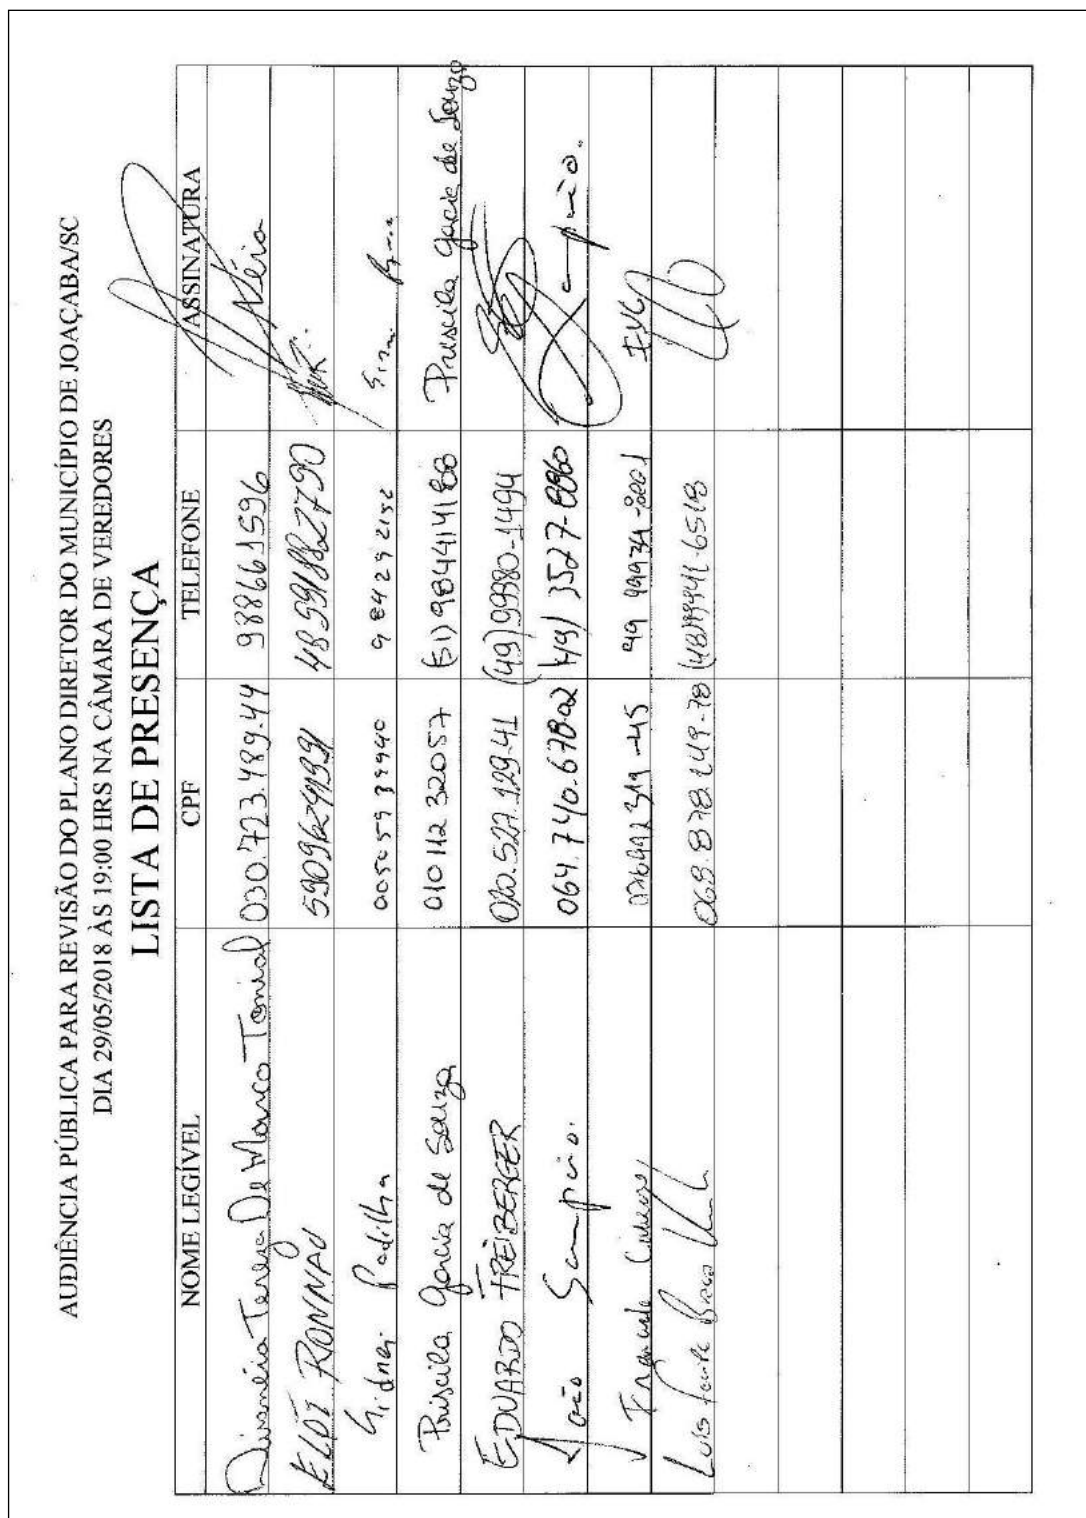 AUDIÊNCIA PÚBLICA PARA REVISÃO DO PLANO DIRETOR DO MUNICÍPIO DE JOAÇABA/SC
DIA 29/05/2018 ÀS 19:00 HRS NA CÂMARA DE VEREDORES
LISTA DE PRESENÇA
NOME LEGÍVEL CPF TELEFONE ASSINATURA
Teresa De Marco Tonial 030.723.489-44 988661596 Néia
ELOI RONNAU 59096241991 48 991882790
Sidnei Padilha 00505939940 984292152
Priscila Garcia de Souza 01011232057 (51) 984414188 Priscila Garcia de Souza
EDUARDO FREIBERGER 020.527.129-41 (49) 99980-1494
João Sampaio. 064.740.678-02 (49) 3527-8860 Sampaio.
Fernanda 49
Luis 068.878.249-78